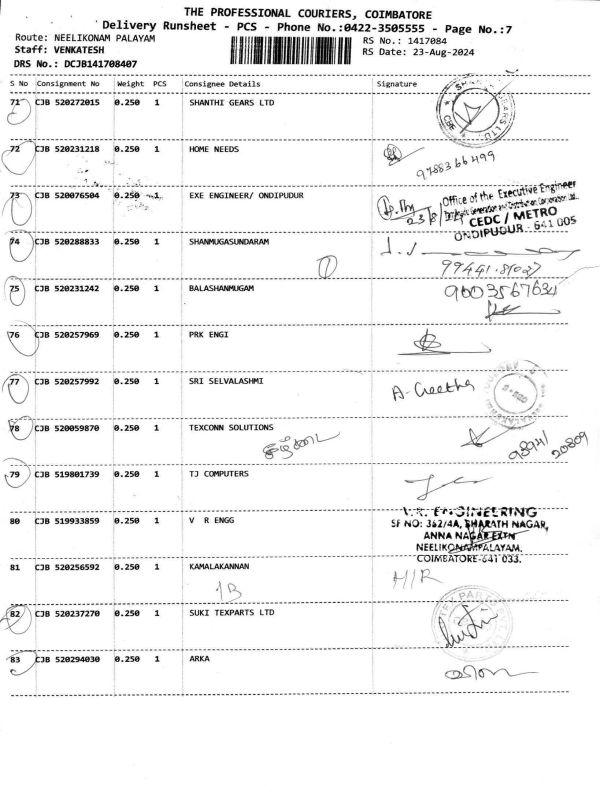 THE PROFESSIONAL COURIERS, COIMBATORE
Delivery Runsheet - PCS - Phone No.:0422-3505555 - Page No.:7
Route: NEELIKONAM PALAYAM
RS No.: 1417084
Staff: VENKATESH
RS Date: 23-Aug-2024
DRS No.: DCJB141708407
S No Consignment No Weight PCS Consignee Details Signature
71 CJB 520272015 0.250 1 SHANTHI GEARS LTD
72 CJB 520231218 0.250 1 HOME NEEDS
9788366499
73 CJB 520076504 0.250 1 EXE ENGINEER/ ONDIPUDUR
Office of the Executive Engineer
23/8
CEDC / METRO
ONDIPUDUR - 641 005
74 CJB 520288833 0.250 1 SHANMUGASUNDARAM
75 CJB 520231242 0.250 1 BALASHANMUGAM
9003567634
76 CJB 520257969 0.250 1 PRK ENGI
77 CJB 520257992 0.250 1 SRI SELVALASHMI
A. Geetha
78 CJB 520059870 0.250 1 TEXCONN SOLUTIONS
98941
20809
79 CJB 519801739 0.250 1 TJ COMPUTERS
80 CJB 519933859 0.250 1 V R ENGG
V.R. ENGINEERING
SF NO: 362/4A, BHARATH NAGAR,
ANNA NAGAR EXTN
NEELIKONAMPALAYAM,
COIMBATORE-641 033.
81 CJB 520256592 0.250 1 KAMALAKANNAN
H/R
82 CJB 520237270 0.250 1 SUKI TEXPARTS LTD
83 CJB 520294030 0.250 1 ARKA